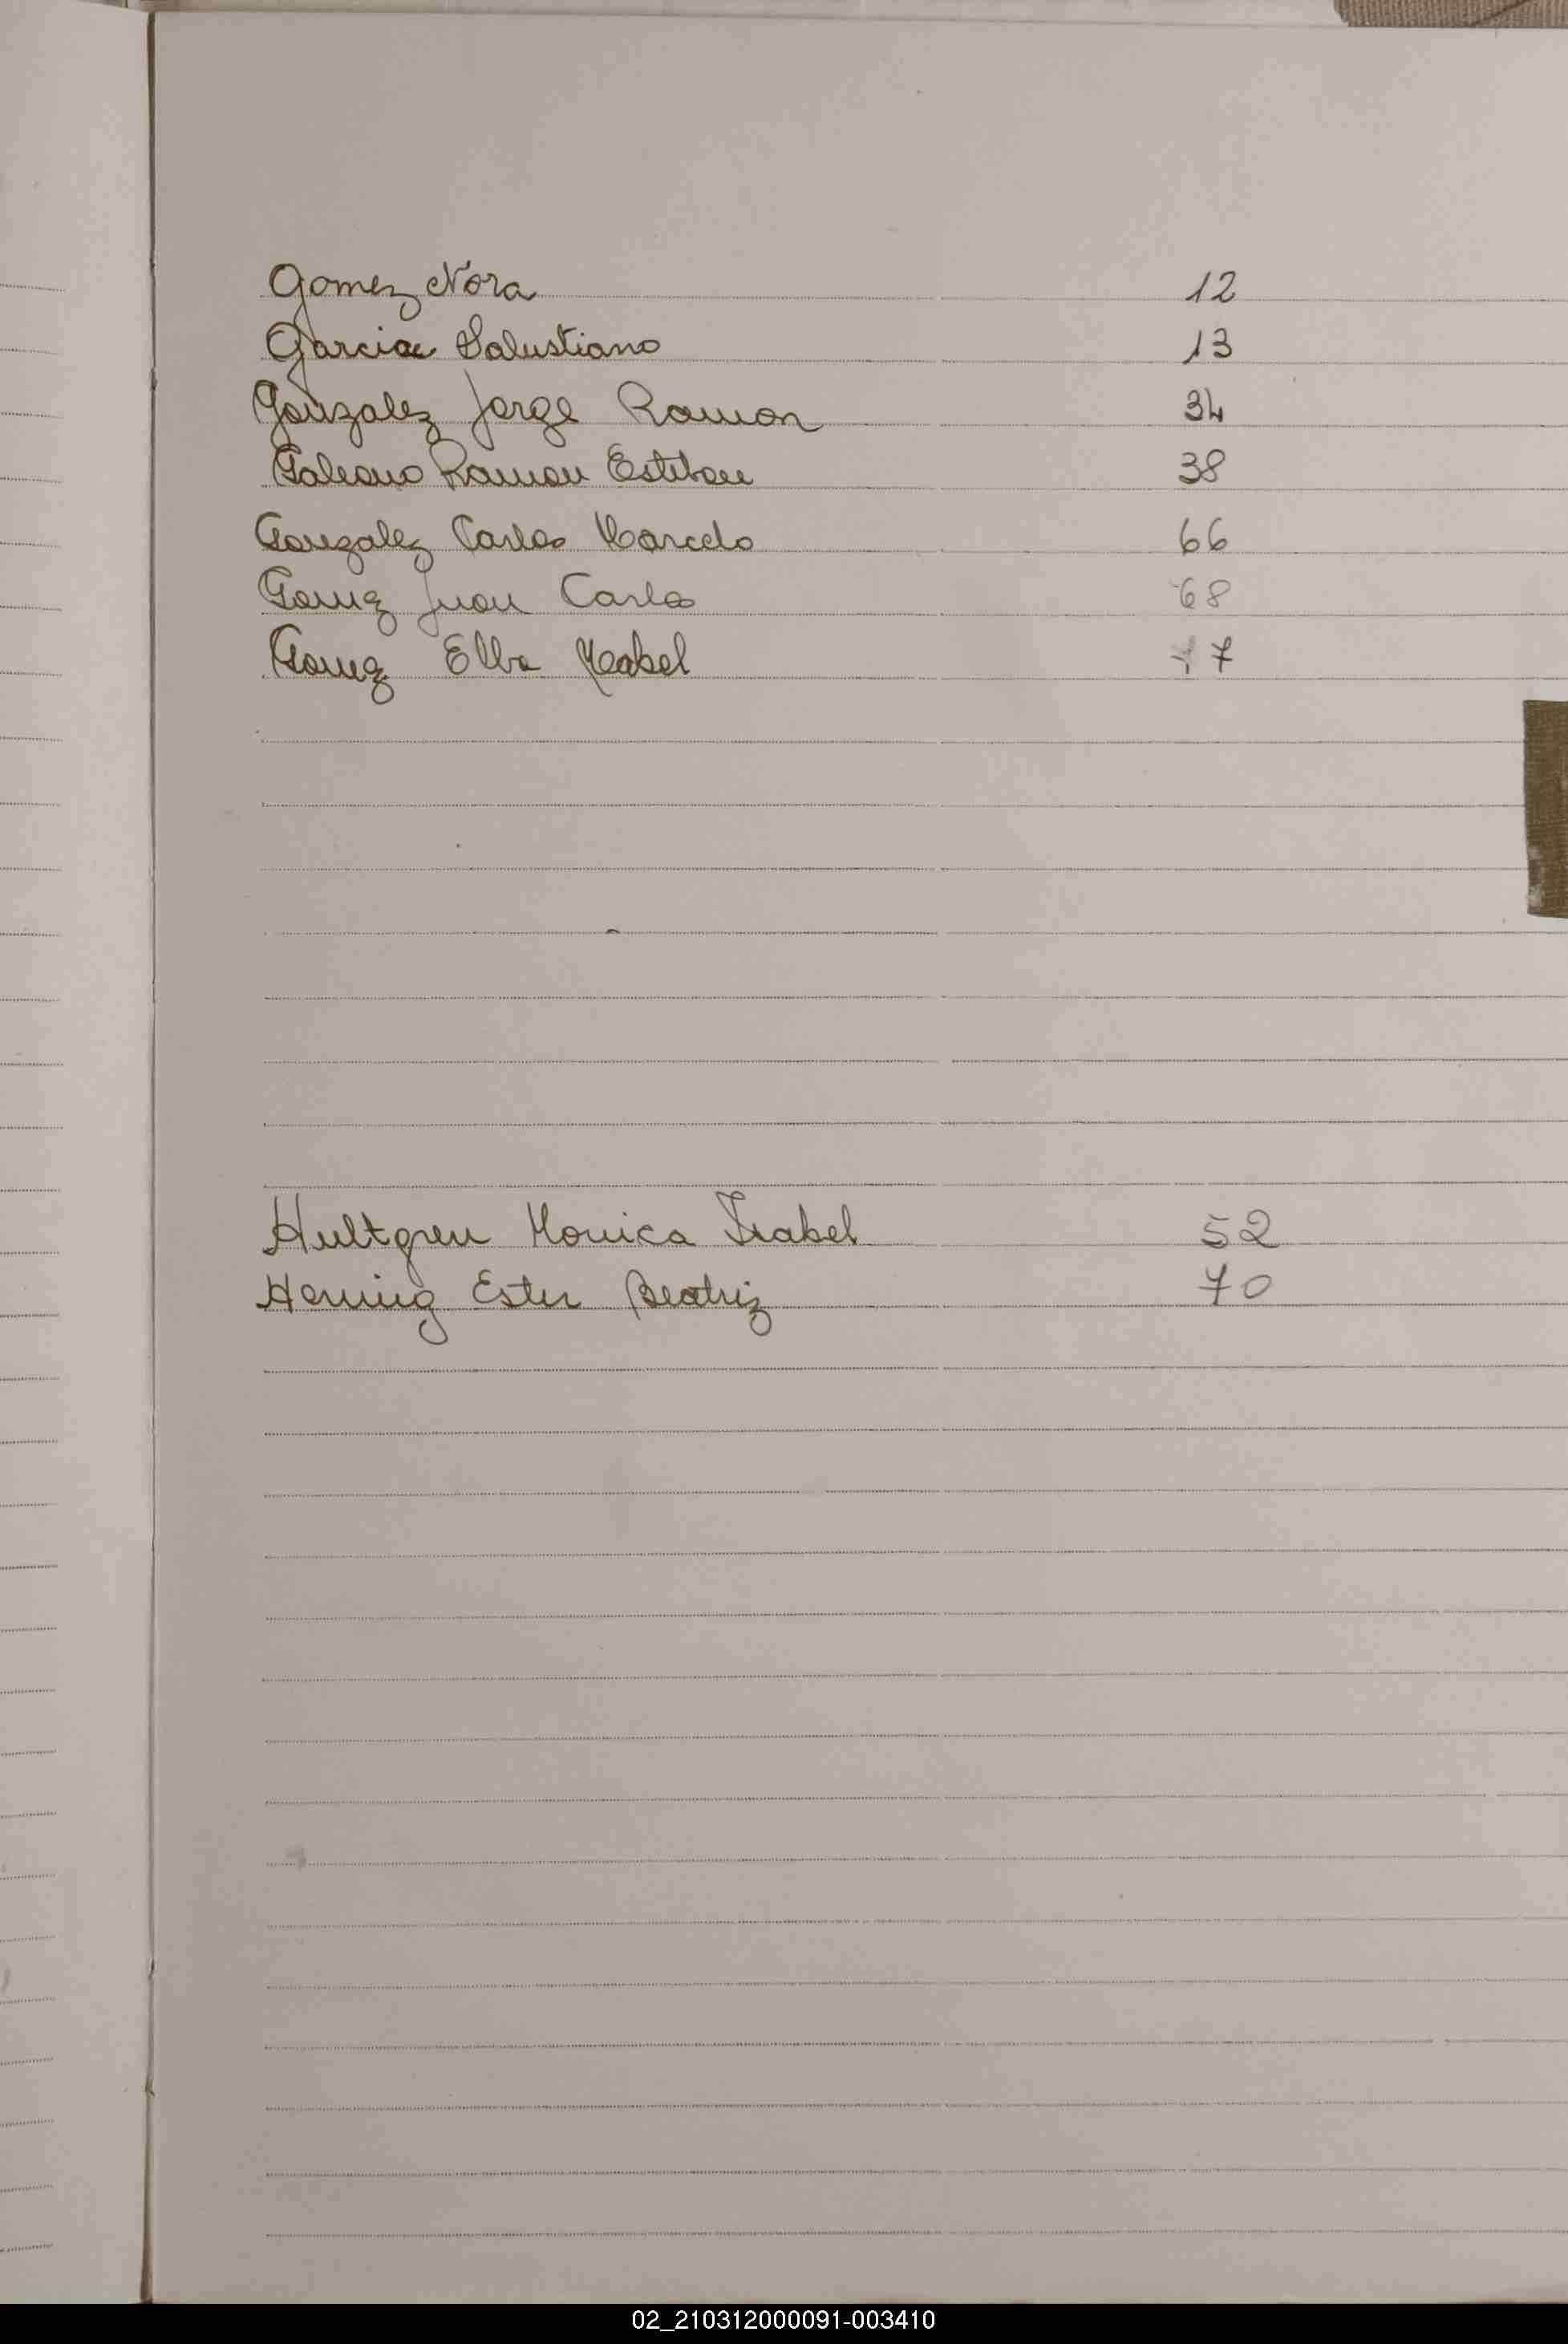 Gomez Nora 12
Garcia Salustiano 13
Gonzalez Jorge Ramon 34
Galeano Ramon Esteban 38
Gonzalez Carlos Marcelo 66
Gomez Juan Carlos 68
Gomez Elba Mabel 77
Hultgren Monica Isabel 52
Henning Ester Beatriz 70
02_210312000091-003410